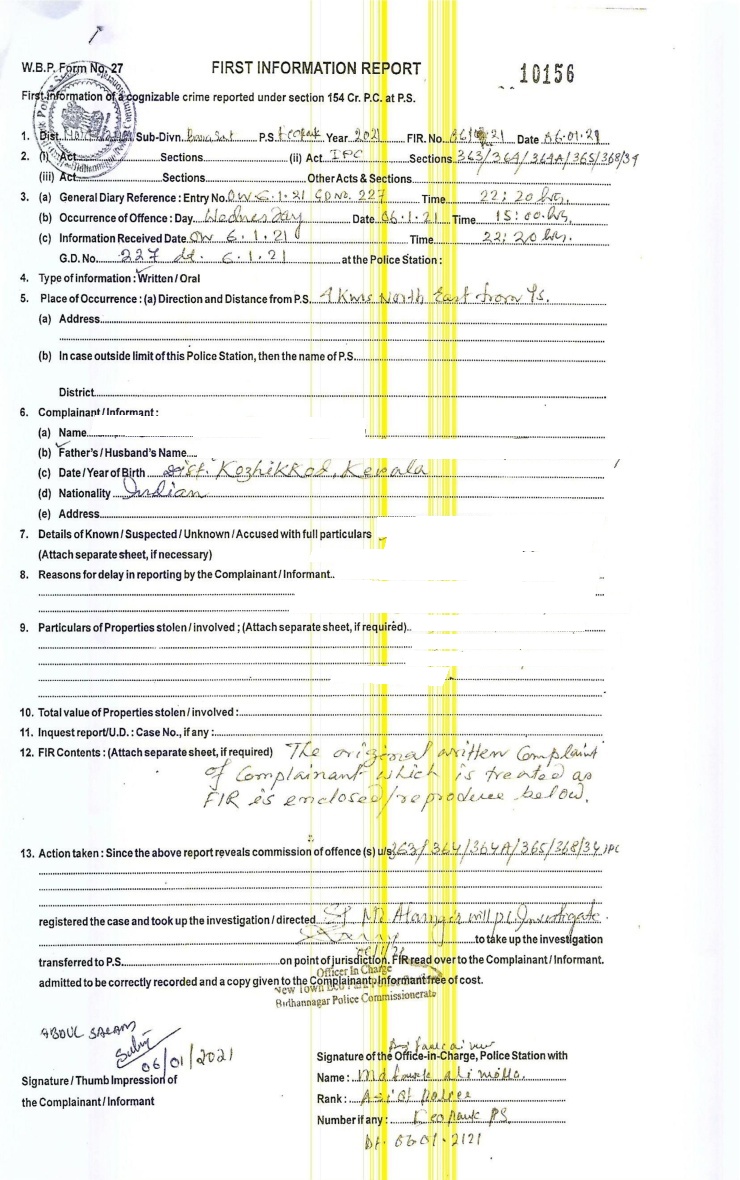 W.B.P. Form No. 27
FIRST INFORMATION REPORT
10156
First Information of a cognizable crime reported under section 154 Cr. P.C. at P.S.
1. Dist. Sub-Divn. P.S. Ecopark Year 2021 FIR. No. Date 06.01.21
2. (i) Act Sections (ii) Act IPC Sections 363/364/364A/365/368/34
(iii) Act Sections Other Acts & Sections
3. (a) General Diary Reference : Entry No. ON 6.1.21 GD NO. 227 Time 22:20 hrs.
(b) Occurrence of Offence : Day Wednesday Date 06.1.21 Time 15:00 hrs.
(c) Information Received Date ON 6.1.21 Time 22:20 hrs.
G.D. No. 227 dt. 6.1.21 at the Police Station :
4. Type of information : Written / Oral
5. Place of Occurrence : (a) Direction and Distance from P.S. Kms North East from Ps.
(a) Address
(b) In case outside limit of this Police Station, then the name of P.S.
District
6. Complainant / Informant :
(a) Name
(b) Father's / Husband's Name
(c) Date / Year of Birth Dist. Kozhikkod, Kerala
(d) Nationality Indian
(e) Address
7. Details of Known / Suspected / Unknown / Accused with full particulars
(Attach separate sheet, if necessary)
8. Reasons for delay in reporting by the Complainant / Informant
9. Particulars of Properties stolen / involved ; (Attach separate sheet, if required)
10. Total value of Properties stolen / involved :
11. Inquest report/U.D. : Case No., if any :
12. FIR Contents : (Attach separate sheet, if required) The original written Complaint
of Complainant which is treated as
FIR is enclosed/reproduce below.
13. Action taken : Since the above report reveals commission of offence (s) u/s 363/364/364A/365/368/34 IPC
registered the case and took up the investigation / directed will Investigate.
to take up the investigation
transferred to P.S. on point of jurisdiction. FIR read over to the Complainant / Informant.
Officer In Charge
admitted to be correctly recorded and a copy given to the Complainant / Informant free of cost.
New Town
Bidhannagar Police Commissionerate
ABDUL SALAM
06/01/2021
Signature / Thumb Impression of
the Complainant / Informant
Signature of the Office-in-Charge, Police Station with
Name : Md
Rank : of Police
Number if any : Ecopark PS